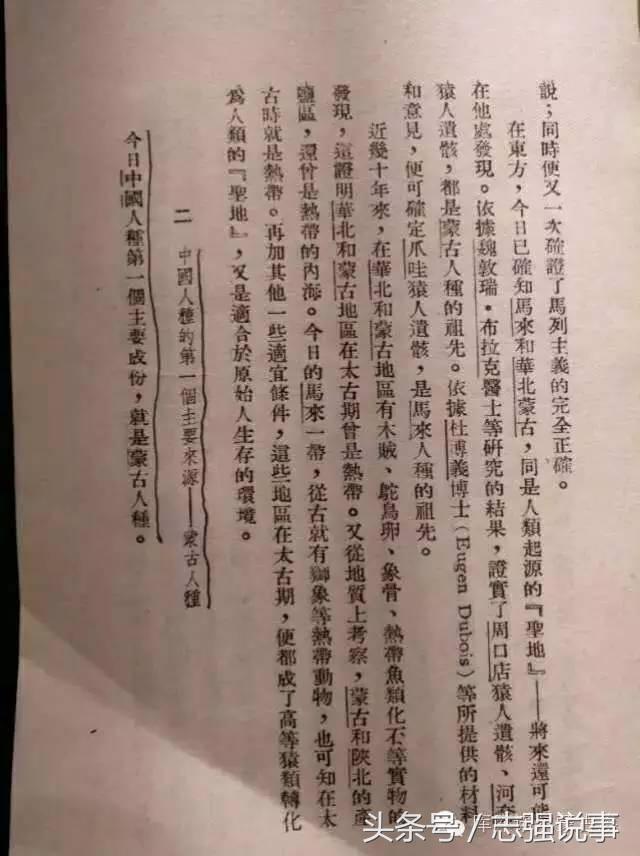 說；同時便又一次確證了馬列主義的完全正確。
在東方，今日已確知馬來和華北蒙古，同是人類起源的『聖地』——將來還可能
在他處發現。依據魏敦瑞·布拉克醫士等研究的結果，證實了周口店猿人遺骸、河套
猿人遺骸，都是蒙古人種的祖先。依據杜博義博士（Eugen Dubois）等所提供的材料
和意見，便可確定爪哇猿人遺骸，是馬來人種的祖先。
近幾十年來，在華北和蒙古地區有木賊、鴕鳥卵、象骨、熱帶魚類化石等實物的
發現，這證明華北和蒙古地區在太古期曾是熱帶。又從地質上考察，蒙古和陝北的產
鹽區，還曾是熱帶的內海。今日的馬來一帶，從古就有獅象等熱帶動物，也可知在太
古時就是熱帶。再加其他一些適宜條件，這些地區在太古期，便都成了高等猿類轉化
為人類的『聖地』，又是適合於原始人生存的環境。
二 中國人種的第一個主要來源——蒙古人種
今日中國人種第一個主要成份，就是蒙古人種。
头条号/志强说事